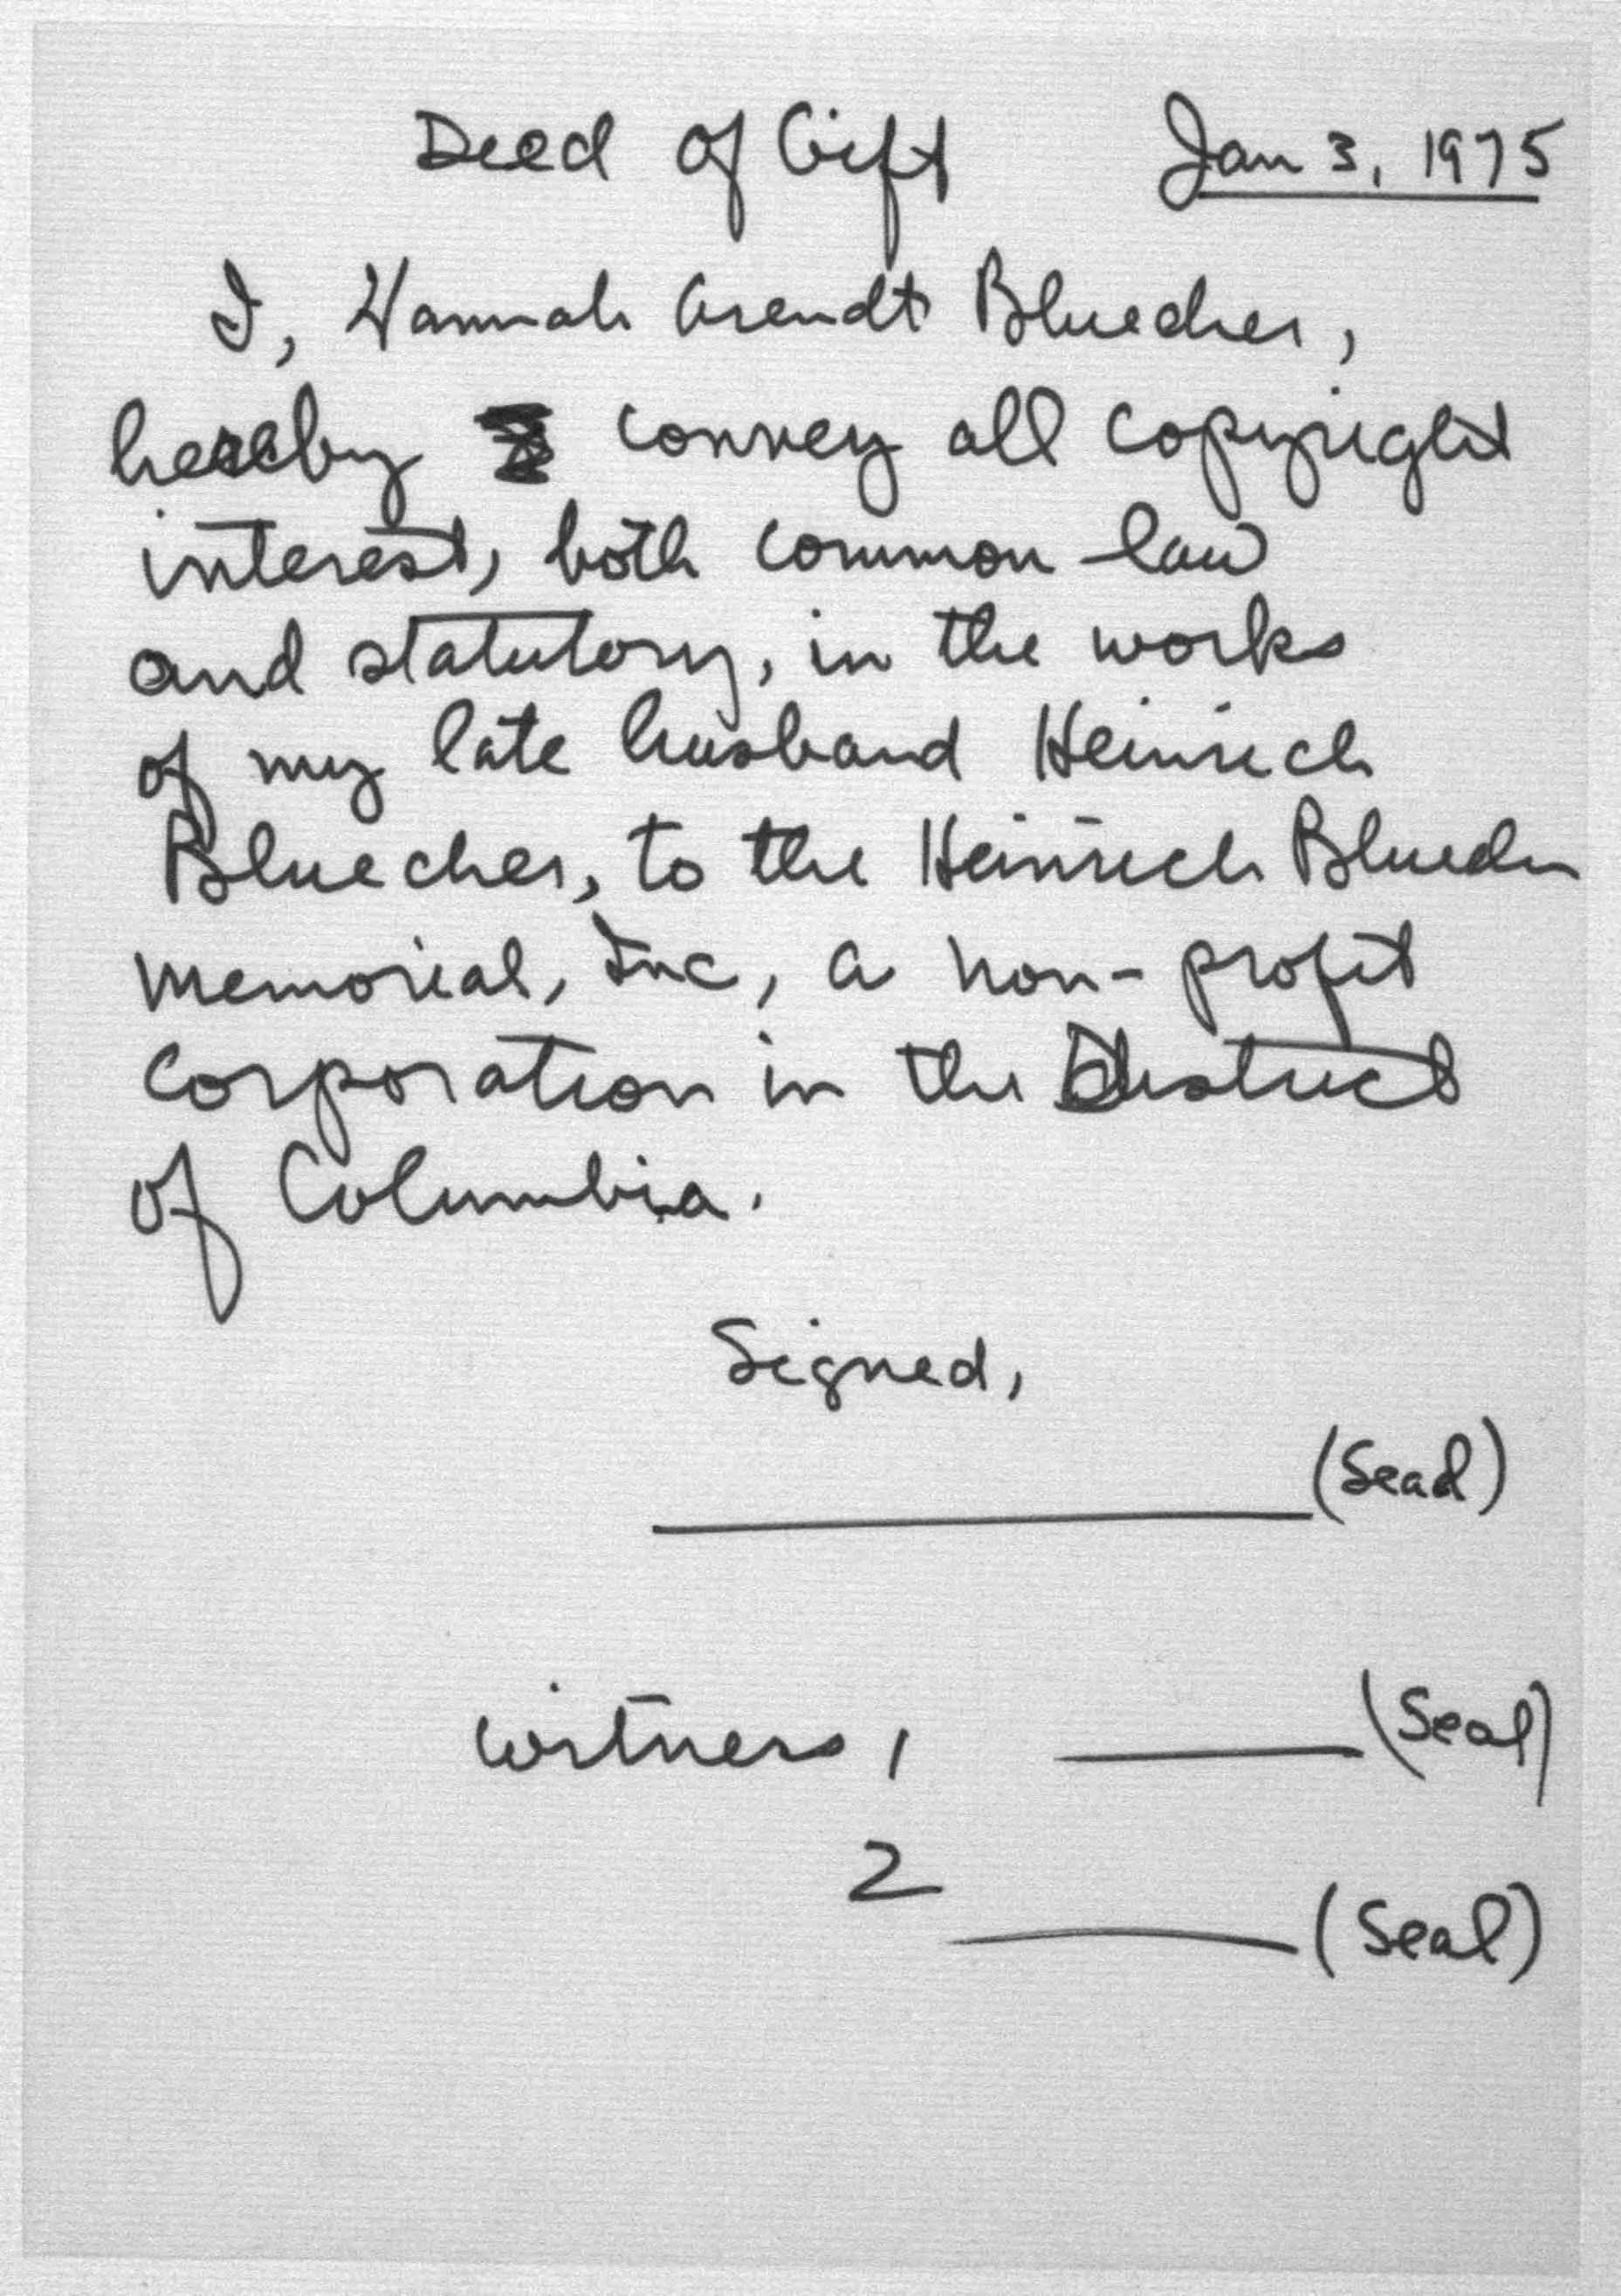 Deed of Gift Jan 3, 1975
I, Hannah Arendt Bluecher,
hereby convey all copyright
interest, both common law
and statutory, in the works
of my late husband Heinrich
Bluecher, to the Heinrich Bluecher
Memorial, Inc, a non-profit
corporation in the District
of Columbia.
Signed,
(Seal)
witness 1 (Seal)
2
(Seal)